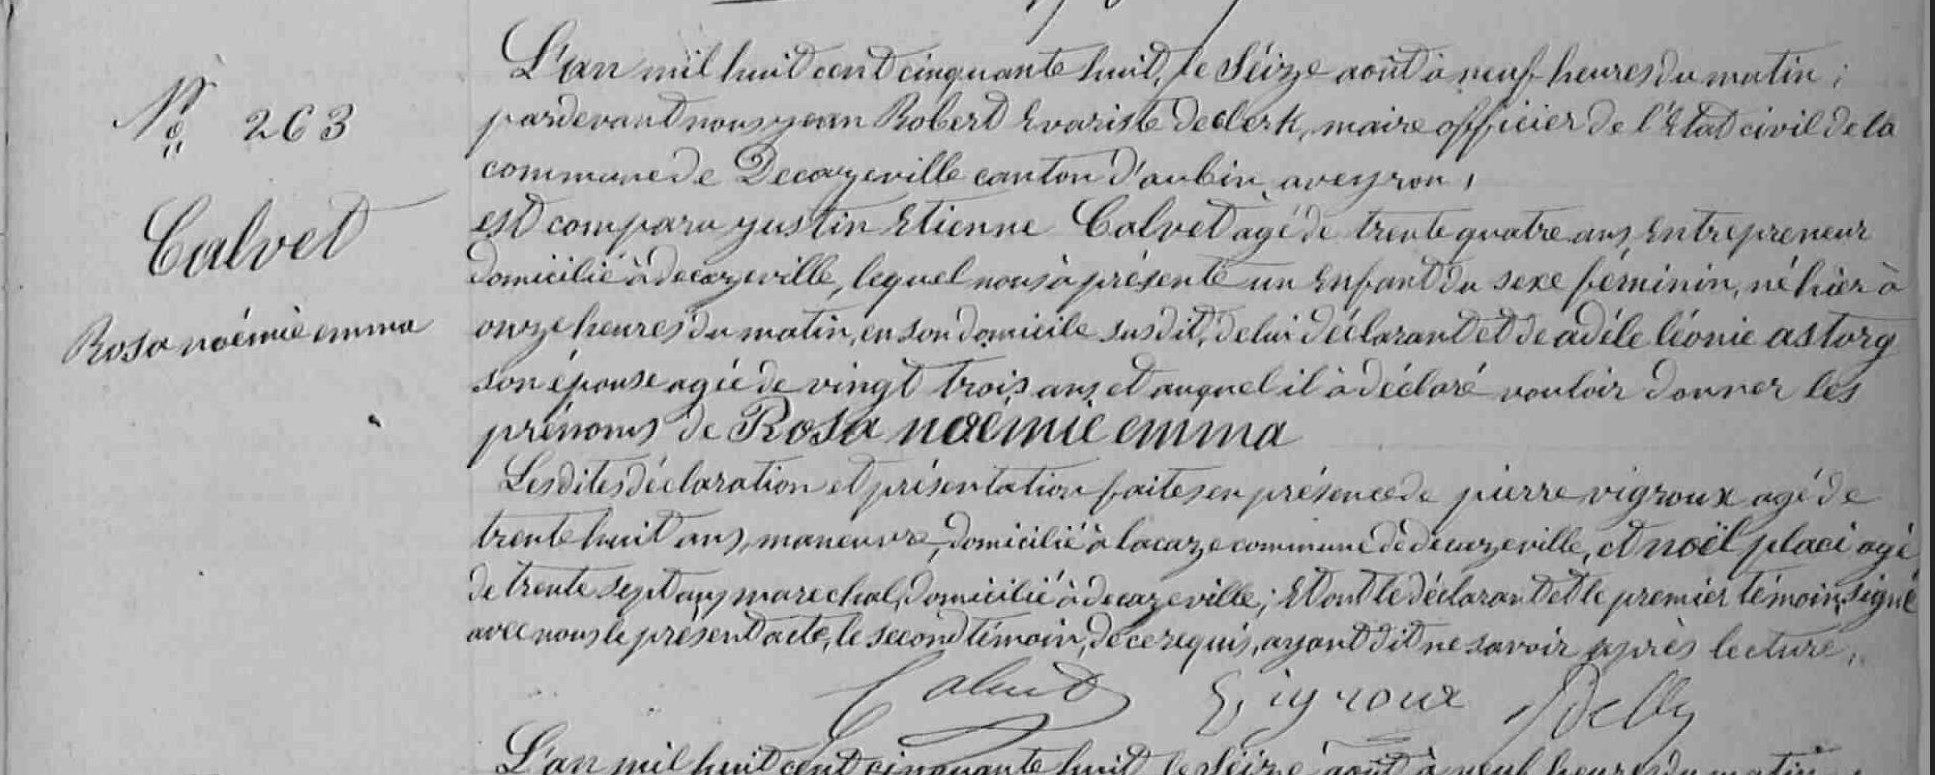 N° 263
Calvet
Rosa noémie emma
L'an mil huit cent cinquante huit, le Seize août à neuf heures du matin ;
pardevant nous jean Robert Evariste declerk, maire officier de l'Etat civil de la
commune de Decazeville canton d'aubin, aveyron,
est comparu justin Etienne Calvet agé de trente quatre ans, Entrepreneur
domicilié à decazeville, lequel nous à présenté un Enfant du sexe féminin, né hièr à
onze heures du matin, en son domicile susdit, de lui déclarant et de adéle léonie astorg
son épouse agée de vingt trois ans, et auquel il à déclaré vouloir donner les
prénoms de Rosa noémie emma
Lesdites déclaration et présentation faites en présence de pierre vigroux agé de
trente huit ans, maneuvre, domicilié à lacaze commune de decazeville, et noël placi agé
de trente sept ans, marechal, domicilié à decazeville ; Et ont le déclarant et le premier témoin, signé
avec nous le présent acte, le second témoin, de ce requis, ayant dit ne savoir après lecture,
Calvet Vigroux
L'an mil huit cent cinquante huit le Seize août à neuf heures du matin